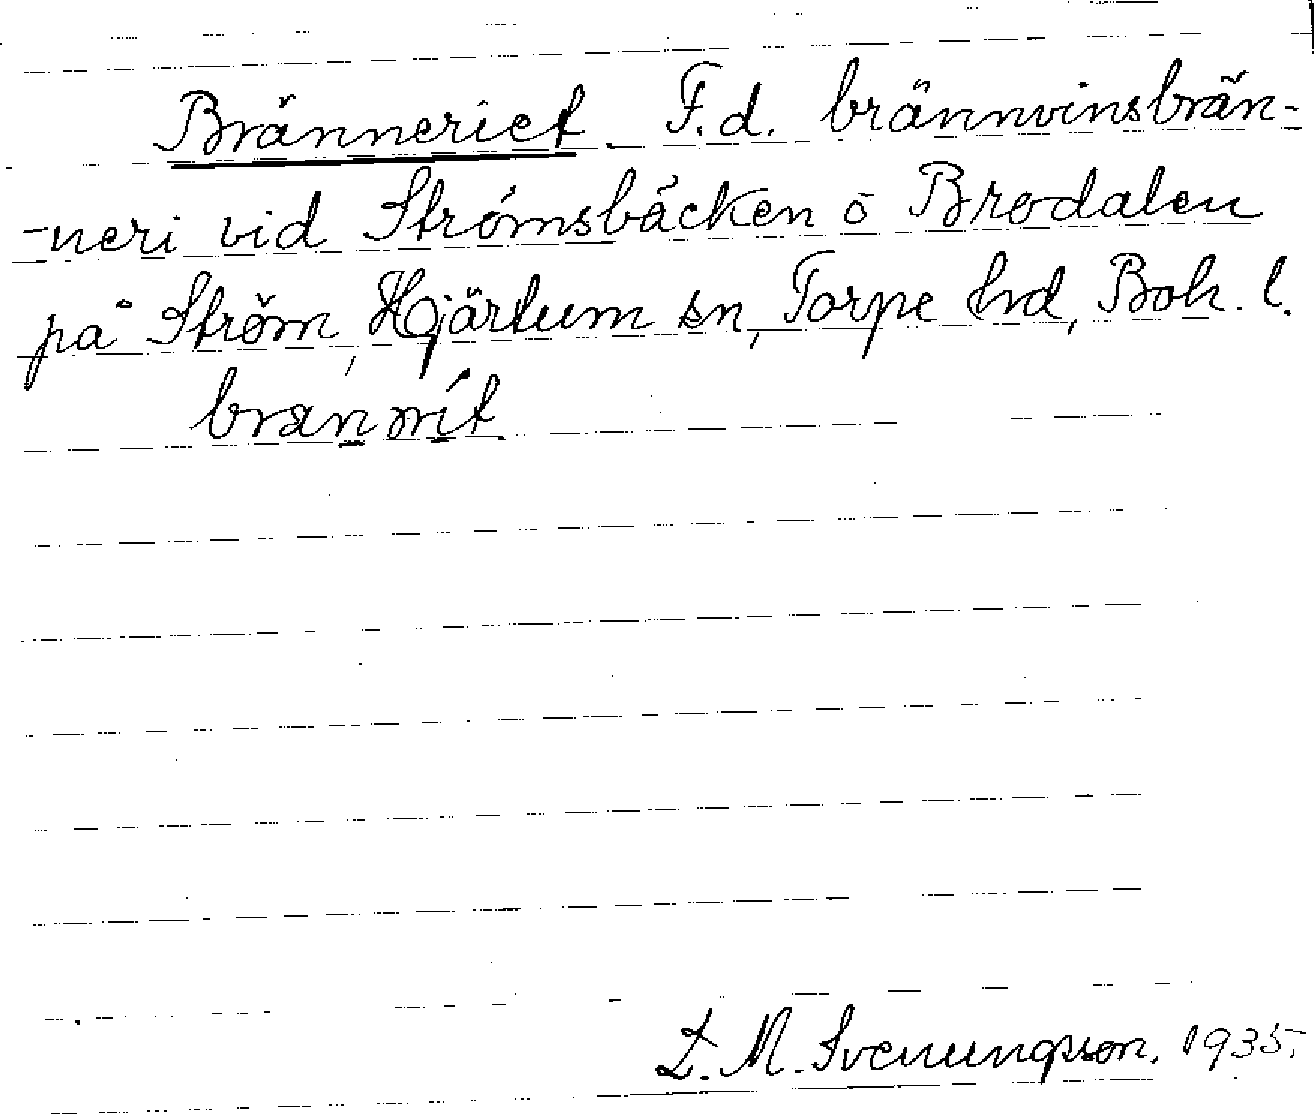 Bränneriet F.d. brännvinsbrän-
-neri vid Strömsbäcken ö Brodalen
på Ström, Hjärtum sn, Torpe hd, Boh. l.
L. M. Svenungsson. 1935.